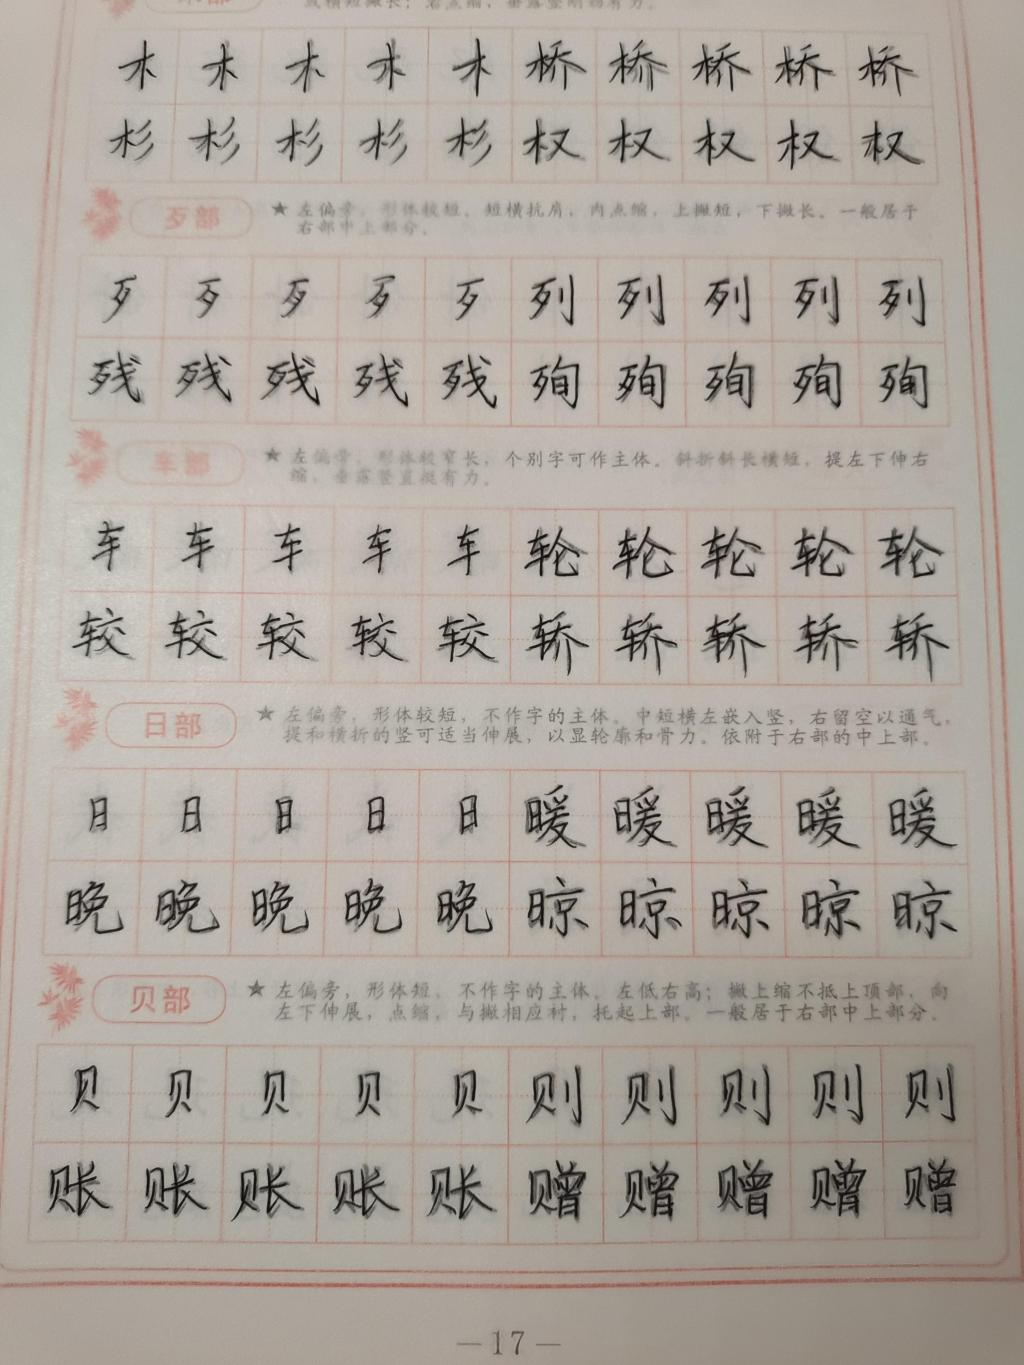 或横短撇长；右点缩，垂露竖刚劲有力。
木 木 木 木 木 桥 桥 桥 桥 桥
杉 杉 杉 杉 杉 权 权 权 权 权
歹部 ★左偏旁，形体较短。短横抗肩，内点缩，上撇短，下撇长。一般居于
右部中上部分。
歹 歹 歹 歹 歹 列 列 列 列 列
残 残 残 残 残 殉 殉 殉 殉 殉
车部 ★左偏旁，形体较窄长，个别字可作主体。斜折斜长横短，提左下伸右
缩，垂露竖直挺有力。
车 车 车 车 车 轮 轮 轮 轮 轮
较 较 较 较 较 轿 轿 轿 轿 轿
日部 ★左偏旁，形体较短，不作字的主体。中短横左嵌入竖，右留空以通气，
提和横折的竖可适当伸展，以显轮廓和骨力。依附于右部的中上部。
日 日 日 日 日 暖 暖 暖 暖 暖
晚 晚 晚 晚 晚 晾 晾 晾 晾 晾
贝部 ★左偏旁，形体短，不作字的主体。左低右高；撇上缩不抵上顶部，向
左下伸展，点缩，与撇相应衬，托起上部。一般居于右部中上部分。
贝 贝 贝 贝 贝 则 则 则 则 则
账 账 账 账 账 赠 赠 赠 赠 赠
—17—